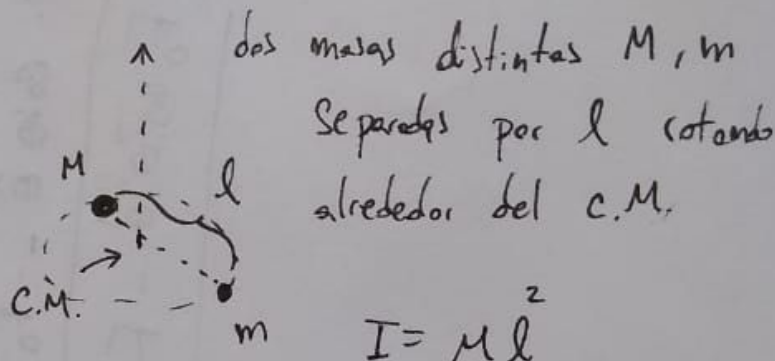 dos masas distintas M, m
separadas por l rotando
alrededor del C.M.
M
l
C.M.
m
I = μ l²